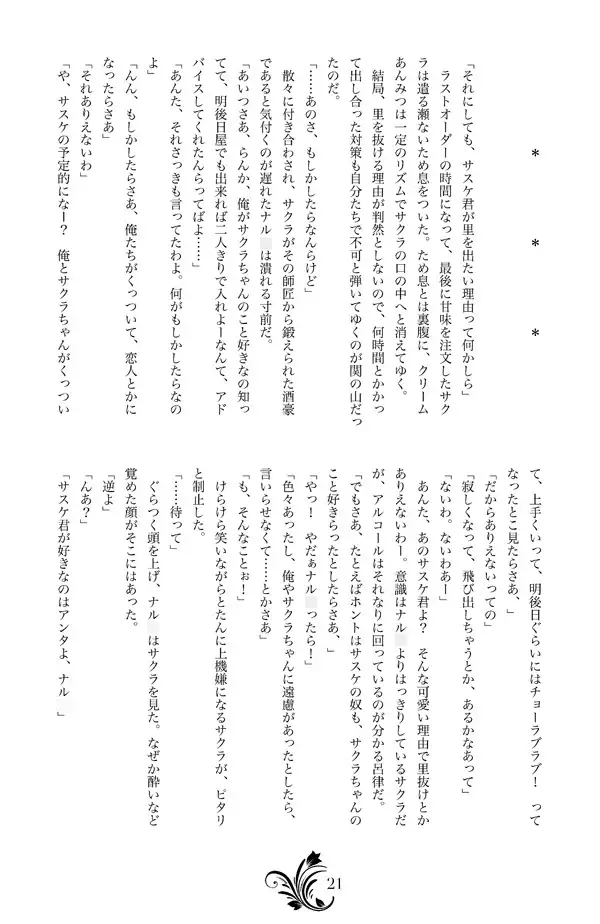 ＊　＊　＊
「それにしても、サスケ君が里を出たい理由って何かしら」
ラストオーダーの時間になって、最後に甘味を注文したサク
ラは遣る瀬ないため息をついた。ため息とは裏腹に、クリーム
あんみつは一定のリズムでサクラの口の中へと消えてゆく。
結局、里を抜ける理由が判然としないので、何時間とかかっ
て出し合った対策も自分たちで不可と弾いてゆくのが関の山だっ
たのだ。
「……あのさ、もしかしたらなんらけど」
散々に付き合わされ、サクラがその師匠から鍛えられた酒豪
であると気付くのが遅れたナル　は潰れる寸前だ。
「あいつさあ、らんか、俺がサクラちゃんのこと好きなの知っ
てて、明後日屋でも出来れば二人きりで入れよーなんて、アド
バイスしてくれたんらってばよ……」
「あんた、それさっきも言ってたわよ。何がもしかしたらなの
よ」
「んん、もしかしたらさあ、俺たちがくっついて、恋人とかに
なったらさあ」
「それありえないわ」
「や、サスケの予定的になー？　俺とサクラちゃんがくっつい
て、上手くいって、明後日ぐらいにはチョーラブラブ！　って
なったとこ見たらさあ、」
「だからありえないっての」
「寂しくなって、飛び出しちゃうとか、あるかなあって」
「ないわ。ないわあー」
あんた、あのサスケ君よ？　そんな可愛い理由で里抜けとか
ありえないわー。意識はナル　よりはっきりしているサクラだ
が、アルコールはそれなりに回っているのが分かる呂律だ。
「でもさあ、たとえばホントはサスケの奴も、サクラちゃんの
こと好きらったとしたらさあ、
「やっ！　やだぁナル　ったら！」
「色々あったし、俺やサクラちゃんに遠慮があったとしたら、
言いらせなくて……とかさあ」
「も、そんなことぉ！」
けらけら笑いながらとたんに上機嫌になるサクラが、ピタリ
と制止した。
「……待って」
ぐらつく頭を上げ、ナル　はサクラを見た。なぜか酔いなど
覚めた顔がそこにはあった。
「逆よ」
「んあ？」
「サスケ君が好きなのはアンタよ、ナル　」
21